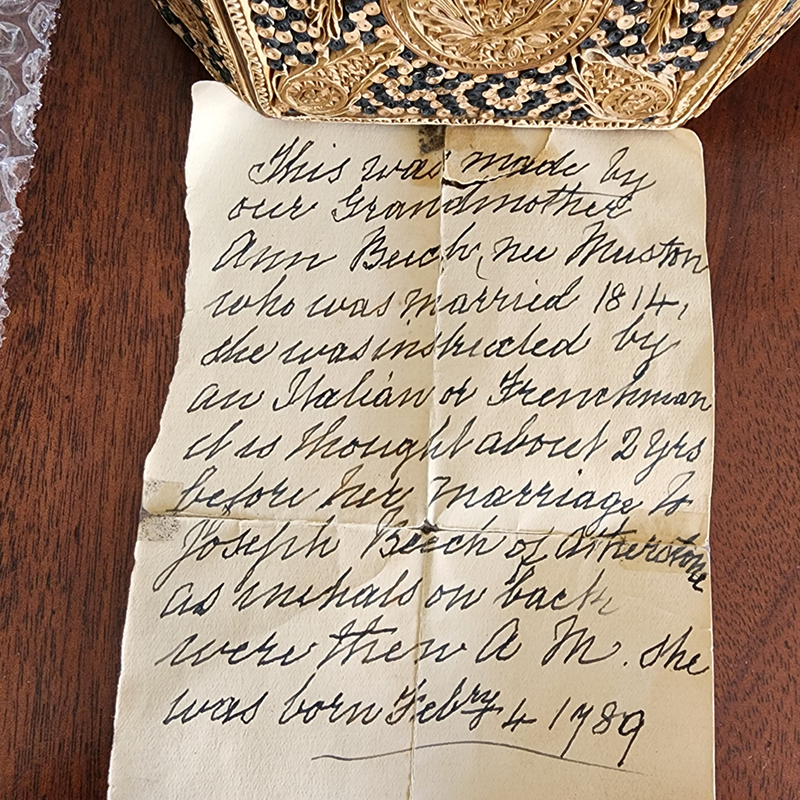 This was made by
our Grandmother
Ann Beech, nee Muston
who was married 1814,
she was instructed by
an Italian or Frenchman
it is thought about 2 yrs
before her marriage to
Joseph Beech of Atherstone
as initials on back
were then A M. she
was born Febry 4 1789